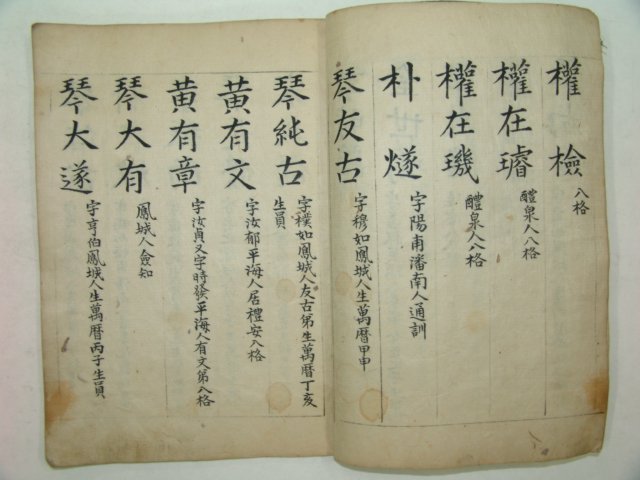 權檢 八格
權在璿 醴泉人八格
權在璣 醴泉人八格
朴燧 字陽甫潘南人通訓
琴友古 字穆如鳳城人生萬曆甲申
琴純古 字樸如鳳城人友古弟生萬曆丁亥
生員
黄有文 字汝郁平海人居禮安八格
黄有章 字汝貞又字時發平海人有文弟八格
琴大有 鳳城人僉知
琴大遂 字亨伯鳳城人生萬曆丙子生員